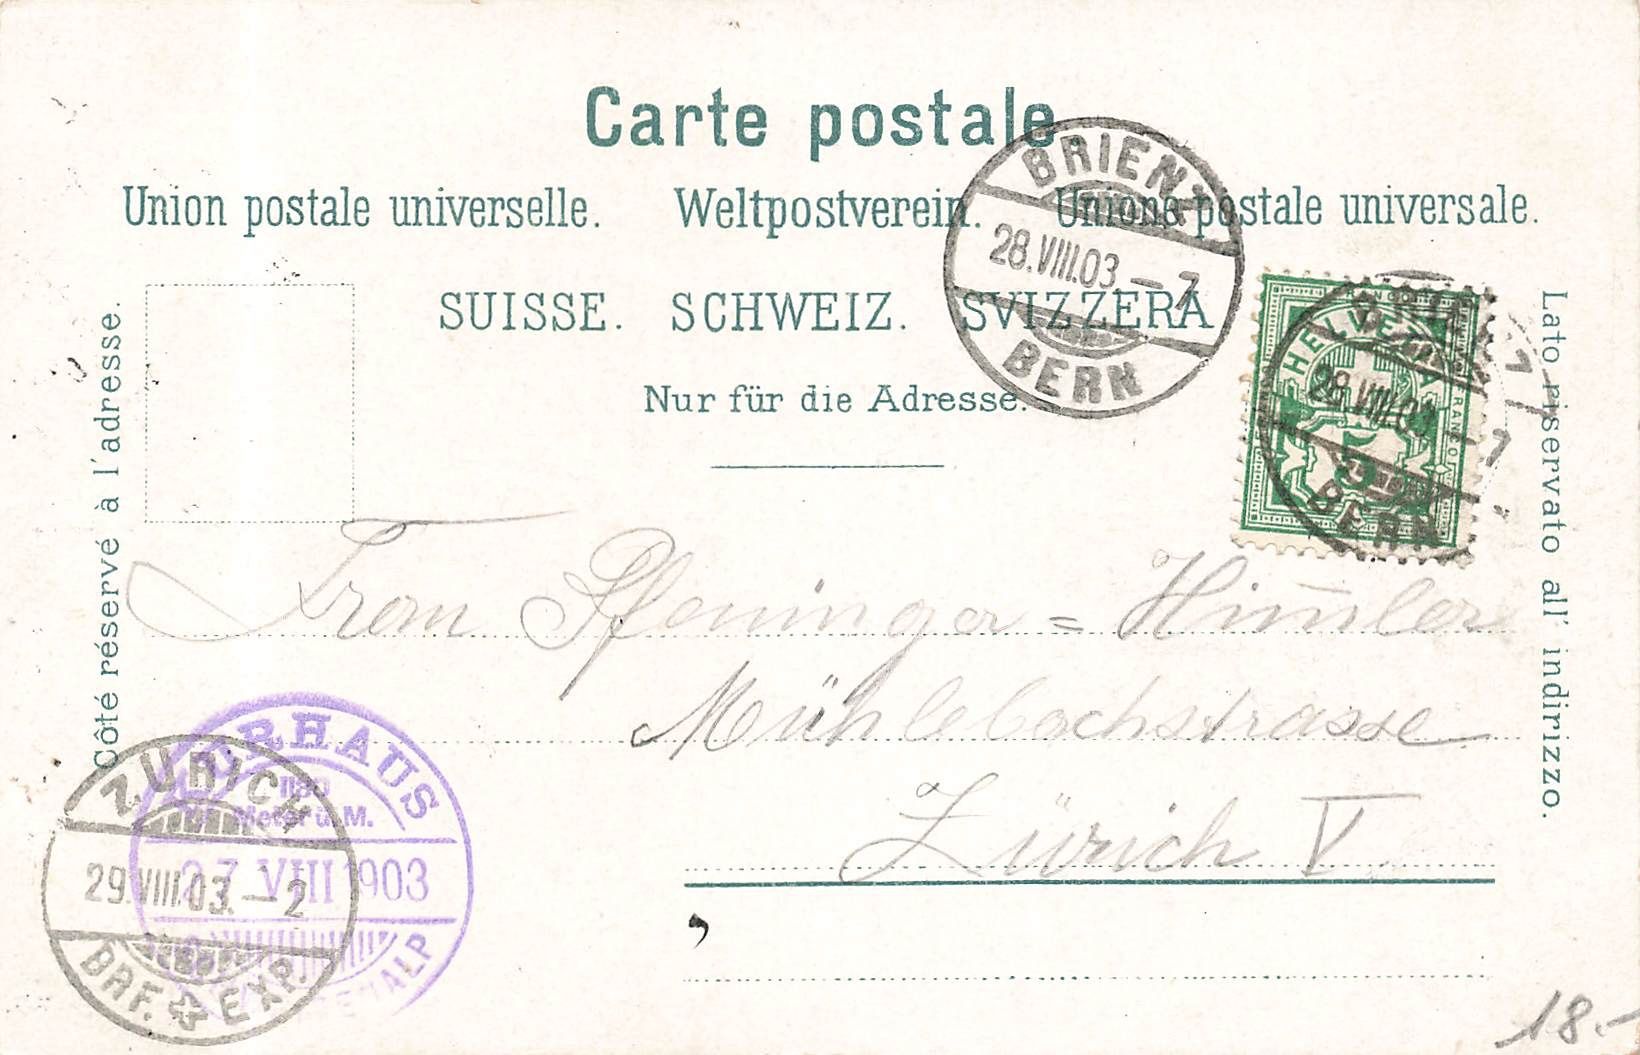 Carte postale.
Union postale universelle. Weltpostverein. Unione postale universale.
SUISSE. SCHWEIZ. SVIZZERA
Nur für die Adresse.
Côté réservé à l'adresse.
Lato riservato all' indirizzo.
BRIENZ
28.VIII.03.–7
BERN
HELVETIA
FRANCO
5
28.VIII.03.–7
BERN
Pfeninger =
Mühlebachstrasse
Zürich V.
KURHAUS
Meter ü. M.
27 VIII 1903
ALP
ZÜRICH
29.VIII.03.–2
BRF. EXP.
18.-